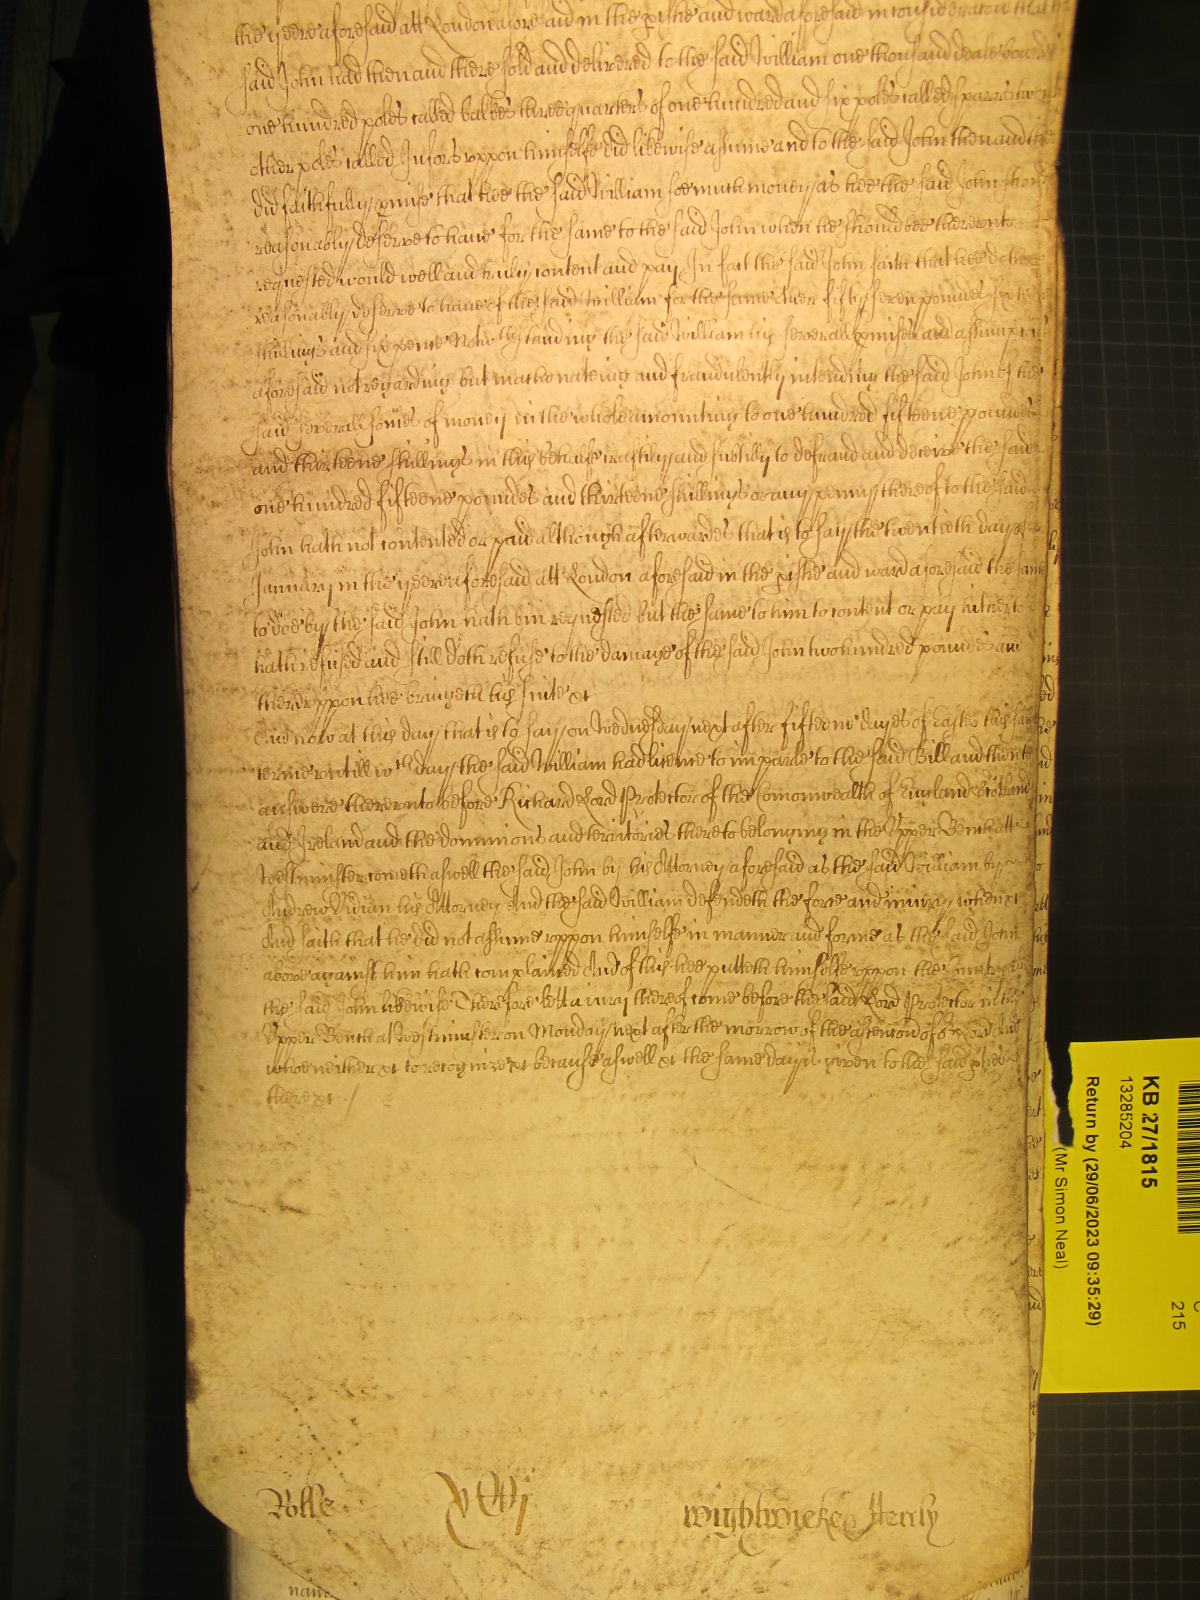 the yeere aforesaid att London aforesaid in the pishe and ward aforesaid in consideracon that the
said John had then and there sold and delivered to the said William one thousand deale boards
one hundred poles called balkes three quarters of one hundred and six poles called sparrs
other poles called uppon himselfe did likewise assume and to the said John then and there
did faithfully pmise that hee the said William soe much money as hee the said John should
reasonably deserve to have for the same to the said John when he should bee thereunto
requested would well and truly content and pay In fact the said John saith that hee doth
reasonally deserve to have of the said William for the same other fifty seven pounds
shillings and six pence Notwthstanding the said William his severall pmises and assumptions
aforesaid not regarding but machonateing and fraudulently intending the said John of the
said severall somes of money in the whole amounting to one hundred fifteene poundes
and thirteene shillings in this behalfe craftily and subtilly to defraud and deceive the said
one hundred fifteene poundes and thirteene shillings or any penny thereof to the said
John hath not contented or paid although afterwardes that is to say the twentieth day of
January in the yeere aforesaid att London aforesaid in the pishe and ward aforesaid the same
to doe by the said John hath bin requested but the same to him to content or pay hitherto
hath refused and still doth refuse to the damage of the said John two hundred poundes and
thereuppon hee bringeth his suite &c
And now at this day that is to say on Wednesday next after fifteene dayes of Easter this same
terme untill wch day the said William had licence to imparle to the said Bill and then to
answere thereunto before Richard Lord Protector of the Comonwealth of England Scotland
and Ireland and the dominions and territories thereto belonging in the Upper Bench att
Westminster cometh aswell the said John by his Attorney aforesaid as the said William by
Andrew Vidian his Attorney And the said William defendeth the force and iniury when &c
And saith that he did not assume uppon himselfe in manner and forme as the said John
above against him hath complained And of this hee putteth himselfe uppon the Countrey
the said John likewise Therefore lett a iury thereof come before the said Lord Protector in the
Upper Bench at Westminster on Monday next after the morrow of the ascention of or Lord And
whoe neither &c to recognize &c because aswell &c the same day is given to the said pties
there &c
Rolle
Wightwicke
KB 27/1815
13285204
Return by (29/06/2023 09:35:29)
(Mr Simon Neal)
215